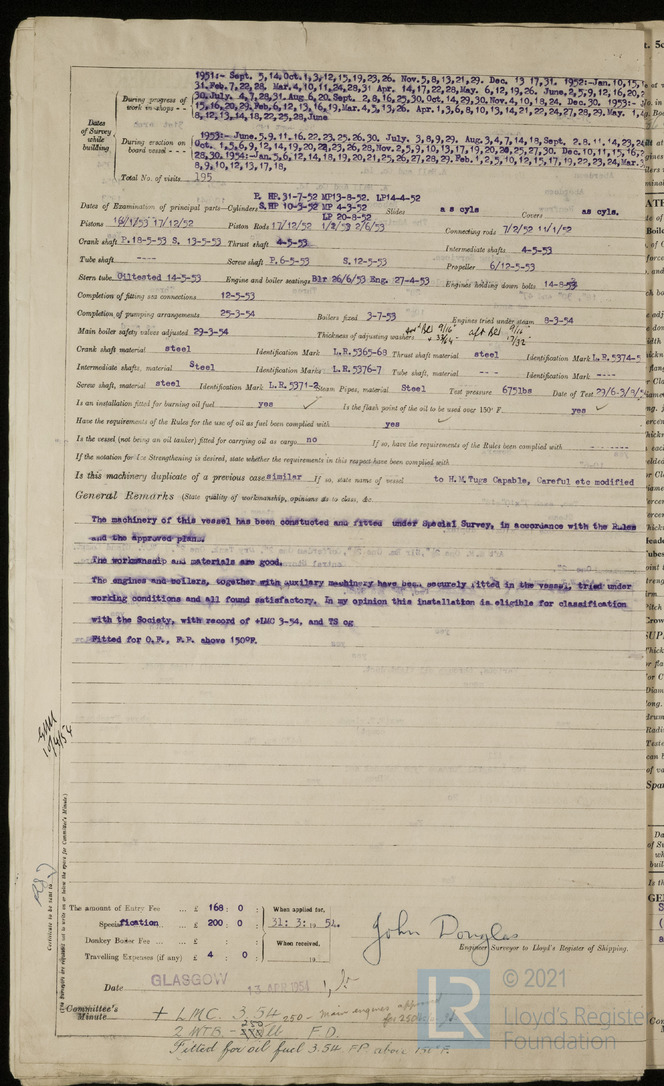 1951:- Sept. 5,14,Oct.1,3,12,15,19,23,26. Nov.5,8,13,21,29. Dec. 13 17,31. 1952:-Jan.10,15,
31.Feb.7,22,28, Mar.4,10,11,24,28,31 Apr. 14,17,22,28,May. 6,12,19,26. June,2,5,9,12,16,20,
30,July. 4,7,28,31.Aug 6,20.Sept. 2,8,16,25,30,Oct,14,29,30.Nov.4,10,18,24, Dec.30. 1953:-
During progress of work in shops - - 15,16,20,29.Feb,6,12,13,16,19,Mar.4,5,13,26. Apr.1,3,6,8,10,13,14,21,22,24,27,28,29.May. 1,
8,12,13,14,18,22,25,28,June
Dates of Survey while building
1953:- June,5,9,11,16,22,23,25,26,30. July. 3,8,9,29. Aug.3,4,7,14,18,Sept. 2,8,11,14,23,
During erection on board vessel - - - Oct. 1,5,6,9,12,14,19,20,22,23,26,28,Nov.2,5,9,10,13,17,19,20,25,27,30. Dec.10,11,15,16,
28,30.1954:-Jan.5,6,12,14,18,19,20,21,25,26,27,28,29.Feb.1,2,5,10,12,15,17,19,22,23,24,Mar.
8,9,10,12,13,17,18,
Total No. of visits 195
P. HP.31-7-52 MP13-8-52. LP14-4-52
Dates of Examination of principal parts—Cylinders S.HP 10-3-52 MP 4-3-52 Slides as cyls Covers as cyls.
LP 20-8-52
Pistons 16/1/53 17/12/52 Piston Rods 17/12/52 1/2/53 2/6/53 Connecting rods 7/2/52 11/1/52
Crank shaft P.18-5-53 S. 13-5-53 Thrust shaft 4-5-53 Intermediate shafts 4-5-53
Tube shaft ---- Screw shaft P.6-5-53 S.12-5-53 Propeller 6/12-5-53
Stern tube Oiltested 14-5-53 Engine and boiler seatings Blr 26/6/53 Eng. 27-4-53 Engines holding down bolts 14-8-53
Completion of fitting sea connections 12-5-53
Completion of pumping arrangements 25-3-54 Boilers fixed 3-7-53 Engines tried under steam 8-3-54
Main boiler safety valves adjusted 29-3-54 Thickness of adjusting washers 9/16" aft 9/16" 17/32"
Crank shaft material steel Identification Mark L.R.5365-68 Thrust shaft material steel Identification Mark L.R.5374-5
Intermediate shafts, material Steel Identification Marks L.R.5376-7 Tube shaft, material --- Identification Mark ----
Screw shaft, material steel Identification Mark L.R.5371-2 Steam Pipes, material Steel Test pressure 675lbs Date of Test 23/6-3/9/
Is an installation fitted for burning oil fuel yes ✓ Is the flash point of the oil to be used over 150° F. yes ✓
Have the requirements of the Rules for the use of oil as fuel been complied with yes ✓
Is the vessel (not being an oil tanker) fitted for carrying oil as cargo no If so, have the requirements of the Rules been complied with --------
If the notation for Ice Strengthening is desired, state whether the requirements in this respect have been complied with
Is this machinery duplicate of a previous case similar If so, state name of vessel to H.M.Tugs Capable, Careful etc modified
General Remarks (State quality of workmanship, opinions as to class, &c.
The machinery of this vessel has been constucted and fitted under Special Survey, in accordance with the Rules
and the approved plans.
The workmanship and materials are good.
The engines and boilers, together with auxilary machinery have been securely fitted in the vessel, tried under
working conditions and all found satisfactory. In my opinion this installation is eligible for classification
with the Society, with record of +LMC 3-54, and TS og
Fitted for O.F., F.P. above 150°F.
Certificate to be sent to
(The Surveyors are requested not to write on or below the space for Committee's Minute.)
The amount of Entry Fee ... £ 168 : 0 : When applied for,
Specification ... £ 200 : 0 : 31: 3: 19 54.
Donkey Boiler Fee ... £ : : When received,
Travelling Expenses (if any) £ 4 : 0 : 19
John Douglas
Engineer Surveyor to Lloyd's Register of Shipping.
GLASGOW
Date 13 APR 1954
Committee's Minute + LMC. 3.54 250 - main engines approved
2 WTB - 250 lb F.D.
Fitted for oil fuel 3.54 FP. above 150°F.
LR
© 2021
Lloyd's Register
Foundation